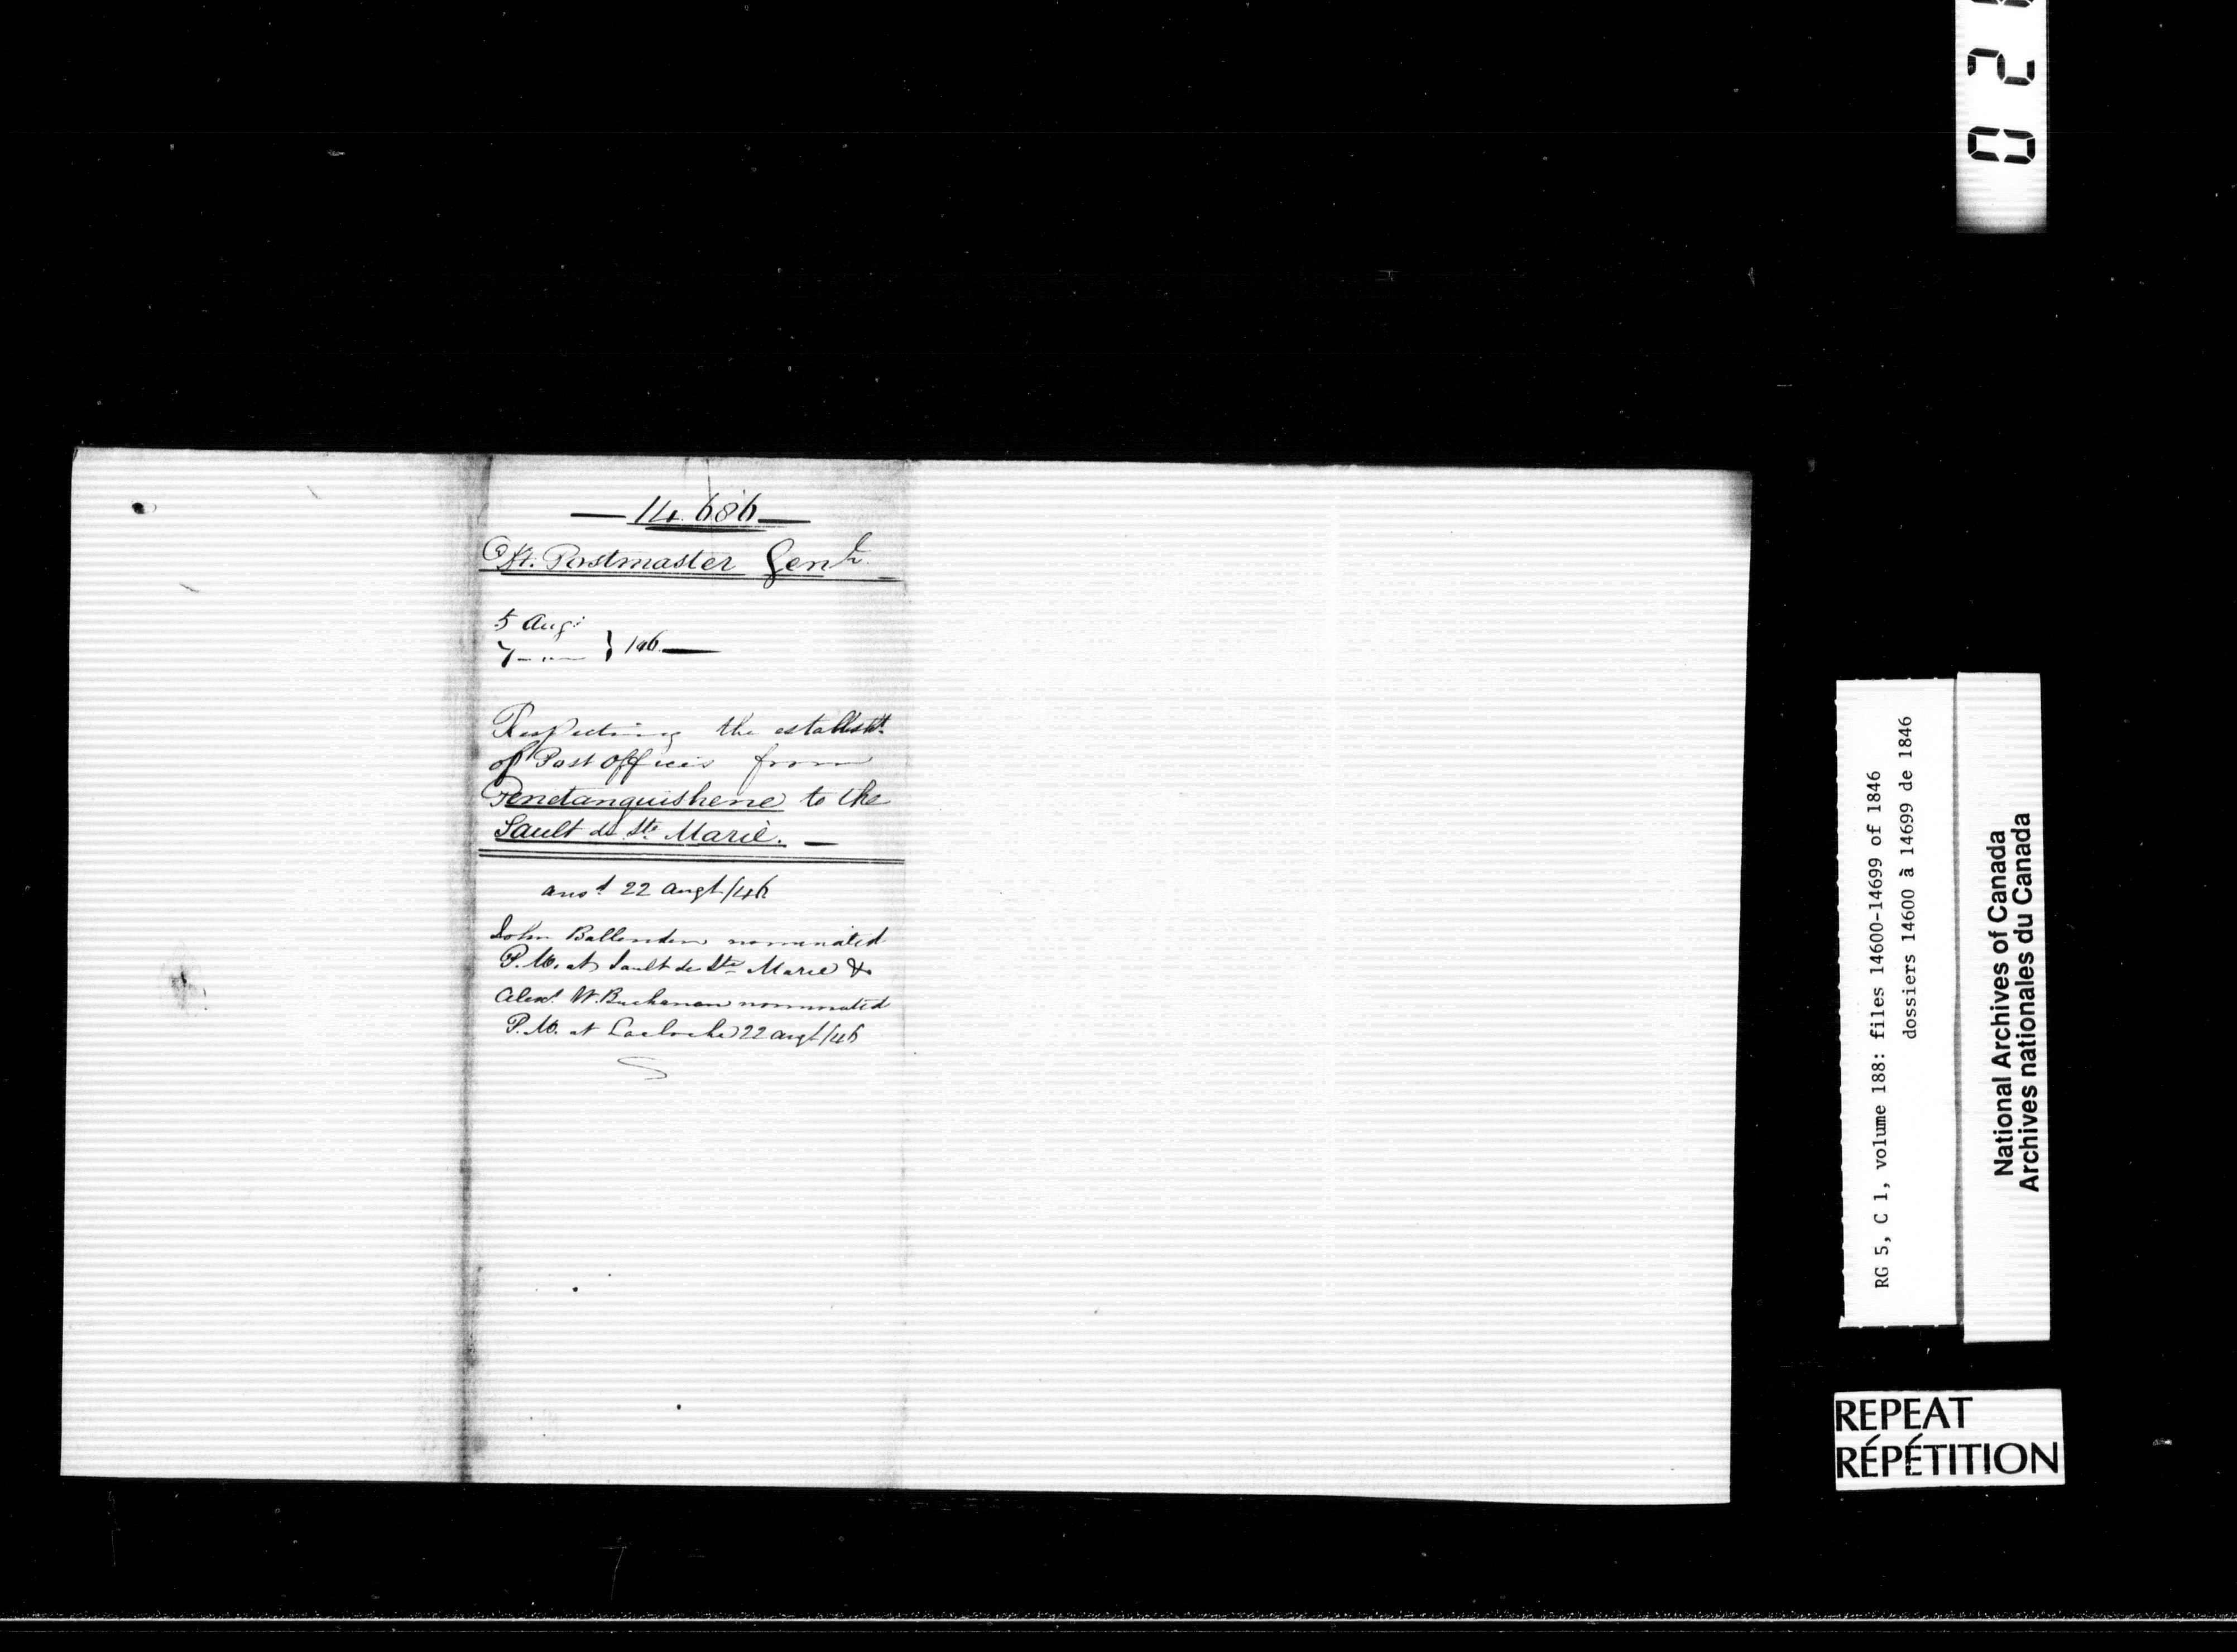 — 14.686 —
Postmaster Genl.
5 Augt
7 — " — } /46 —
Respecting the establisht.
of Post Offices from
Penetanguishene to the
Sault de Ste. Marie. —
ansd 22 Augt /46
John Ballenden nominated
P.M. at Sault de Ste Marie &
Alexr. W. Buchanan nominated
P.M. at Lacloche 22 Augt /46
0 2
RG 5, C 1, volume 188: files 14600-14699 of 1846
dossiers 14600 à 14699 de 1846
National Archives of Canada
Archives nationales du Canada
REPEAT
RÉPÉTITION